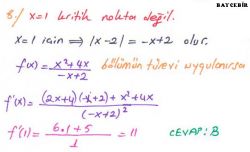 BAYCEBİR
8./ x=1 kritik nokta değil.
x=1 için ⇒ |x-2| = -x+2 olur.
f(x) = x²+4x / -x+2 bölümün türevi uygulanırsa
f'(x) = (2x+4)(-x+2) + x²+4x / (-x+2)²
f'(1) = 6.1+5 / 1 = 11 CEVAP: B